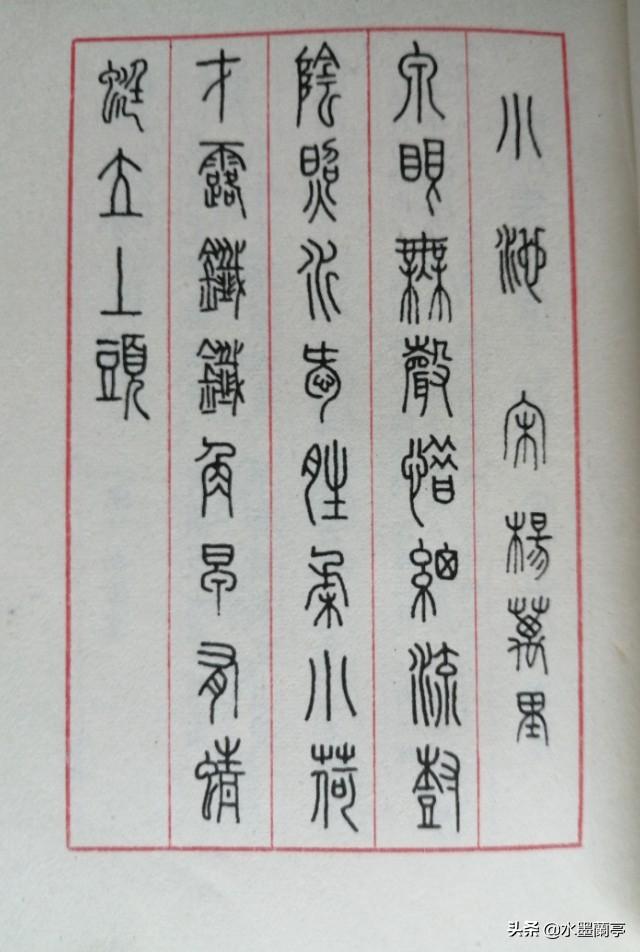 小池 宋 楊萬里
泉眼無聲惜細流樹
陰照水愛晴柔小荷
才露鑯鑯角早有蜻
蜓立上頭
头条 @水墨蘭亭